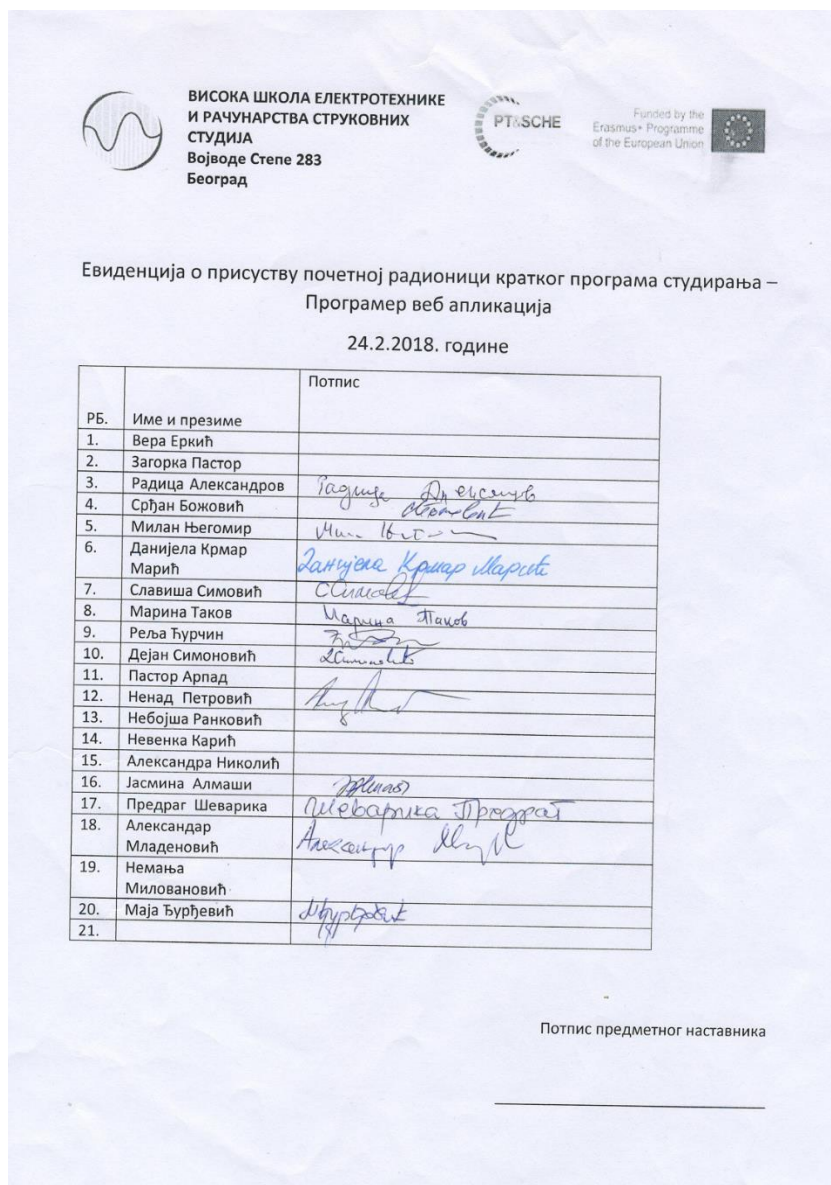 ВИСОКА ШКОЛА ЕЛЕКТРОТЕХНИКЕ
И РАЧУНАРСТВА СТРУКОВНИХ
СТУДИЈА
Војводе Степе 283
Београд
PT&SCHE
Funded by the
Erasmus+ Programme
of the European Union
Евиденција о присуству почетној радионици кратког програма студирања –
Програмер веб апликација
24.2.2018. године
Потпис
РБ. Име и презиме
1. Вера Еркић
2. Загорка Пастор
3. Радица Александров
4. Срђан Божовић
5. Милан Његомир
6. Данијела Крмар Данијела Крмар Марић
Марић
7. Славиша Симовић
8. Марина Таков Марина Таков
9. Реља Ћурчин
10. Дејан Симоновић
11. Пастор Арпад
12. Ненад Петровић
13. Небојша Ранковић
14. Невенка Карић
15. Александра Николић
16. Јасмина Алмаши
17. Предраг Шеварика Шеварика Предраг
18. Александар Александар
Младеновић
19. Немања
Миловановић
20. Маја Ђурђевић
21.
Потпис предметног наставника